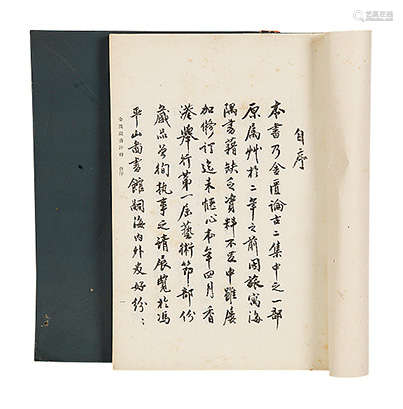 自序
本書乃金匱論古二集中之一部
原屬草於二年之前因旅寓海
隅書籍缺乏資料不足中雖屢
加修訂迄未愜心本年四月香
港舉行第一屆藝術節部份
藏品曾徇執事之請展覽於馮
平山圖書館嗣海內外友好紛:
自序
一